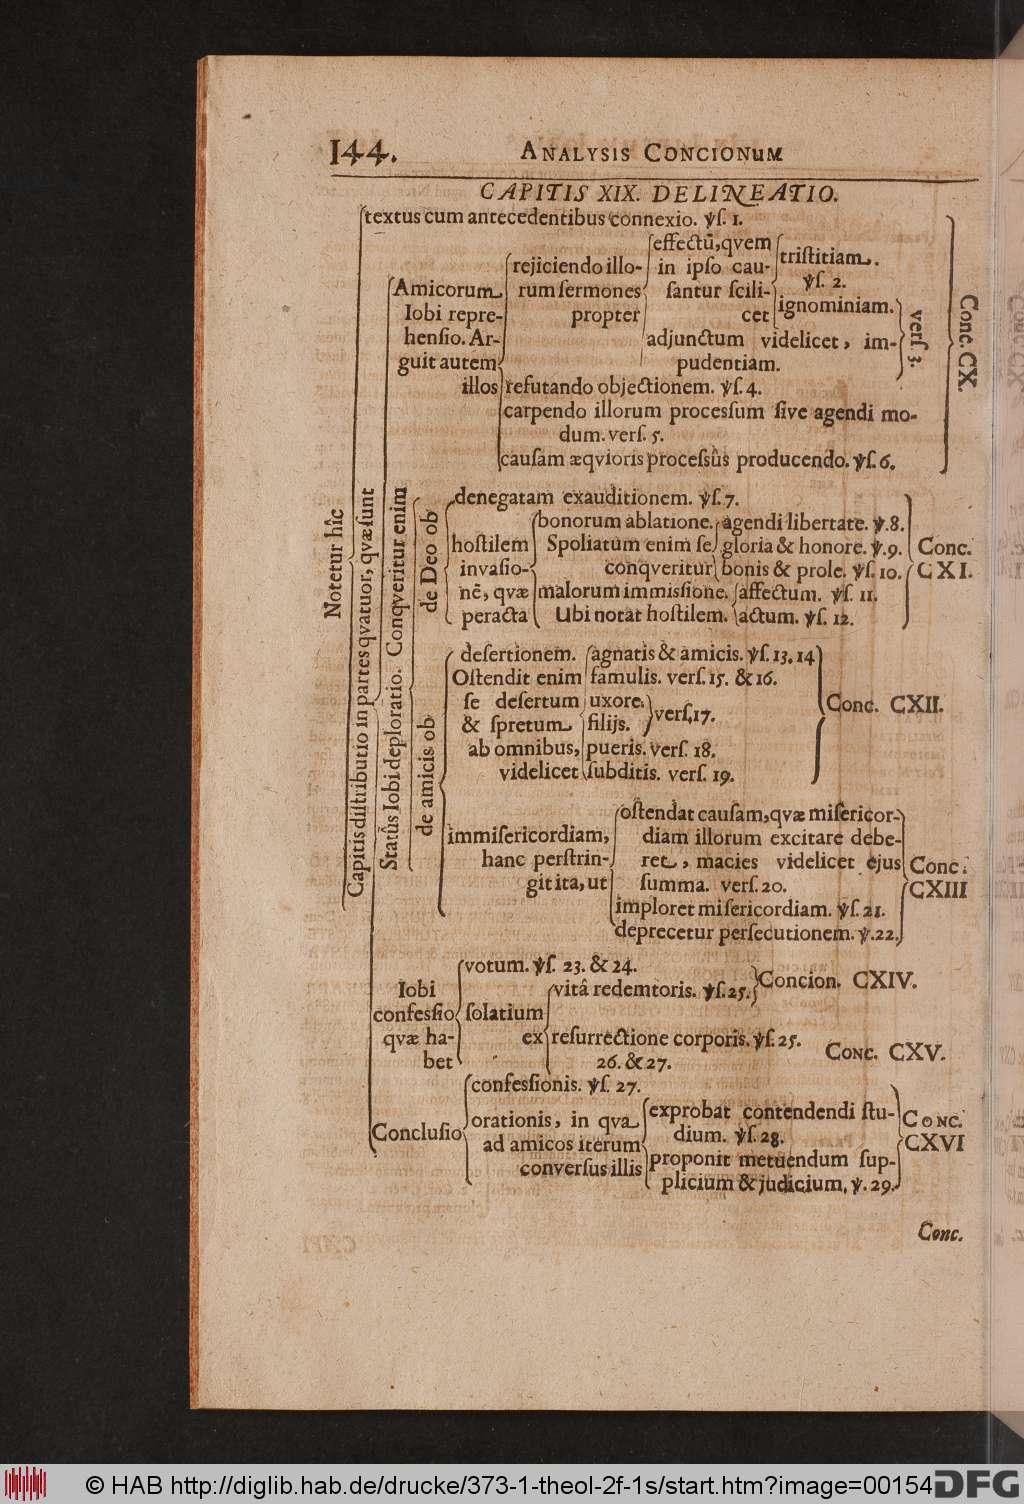 144.
ANALYSIS CONCIONUM
CAPITIS XIX. DELINEATIO.
Notetur hîc
textus cum antecedentibus connexio. ℣ſ. 1.
Capitis diſtributio in partes qvatuor, qvæ ſunt
Amicorum
Iobi repre-
henſio. Ar-
guit autem
illos
rejiciendo illo-
rum ſermones
propter
effectũ, qvem
in ipſo cau-
ſantur ſcili-
cet
triſtitiam.
℣ſ. 2.
ignominiam.
adjunctum videlicet, im-
pudentiam.
verſ. 3.
refutando objectionem. ℣ſ. 4.
carpendo illorum proceſſum ſive agendi mo-
dum. verſ. 5.
cauſam æqvioris proceſsûs producendo. ℣ſ. 6.
Conc. CX.
Statûs Iobi deploratio. Conqveritur enim
de Deo ob
denegatam exauditionem. ℣ſ. 7.
hoſtilem
invaſio-
nẽ, qvæ
peracta
bonorum ablatione.
Spoliatum enim ſe
conqveritur
agendi libertate. ℣. 8.
gloria & honore. ℣. 9.
bonis & prole. ℣ſ. 10.
malorum immiſſione.
Ubi notat hoſtilem.
affectum. ℣ſ. 11.
actum. ℣ſ. 12.
Conc.
CXI.
de amicis ob
deſertionem.
Oſtendit enim
ſe deſertum
& ſpretum
ab omnibus,
videlicet
agnatis & amicis. ℣ſ. 13. 14
famulis. verſ. 15. & 16.
uxore.
filijs.
verſ. 17.
pueris. verſ. 18.
ſubditis. verſ. 19.
Conc. CXII.
immiſericordiam,
hanc perſtrin-
git ita, ut
oſtendat cauſam, qvæ miſericor-
diam illorum excitare debe-
ret, macies videlicet ejus
ſumma. verſ. 20.
imploret miſericordiam. ℣ſ. 21.
deprecetur perſecutionem. ℣. 22.
Conc.
CXIII
Iobi
confeſſio
qvæ ha-
bet
votum. ℣ſ. 23. & 24.
ſolatium
ex
vitâ redemtoris. ℣ſ. 25.
Concion. CXIV.
reſurrectione corporis. ℣ſ. 25.
26. & 27.
CONC. CXV.
Concluſio
confeſſionis. ℣ſ. 27.
orationis, in qva
ad amicos iterum
converſus illis
exprobat contendendi ſtu-
dium. ℣ſ. 28.
proponit metuendum ſup-
plicium & judicium, ℣. 29.
CONC.
CXVI
Conc.
© HAB http://diglib.hab.de/drucke/373-1-theol-2f-1s/start.htm?image=00154
DFG